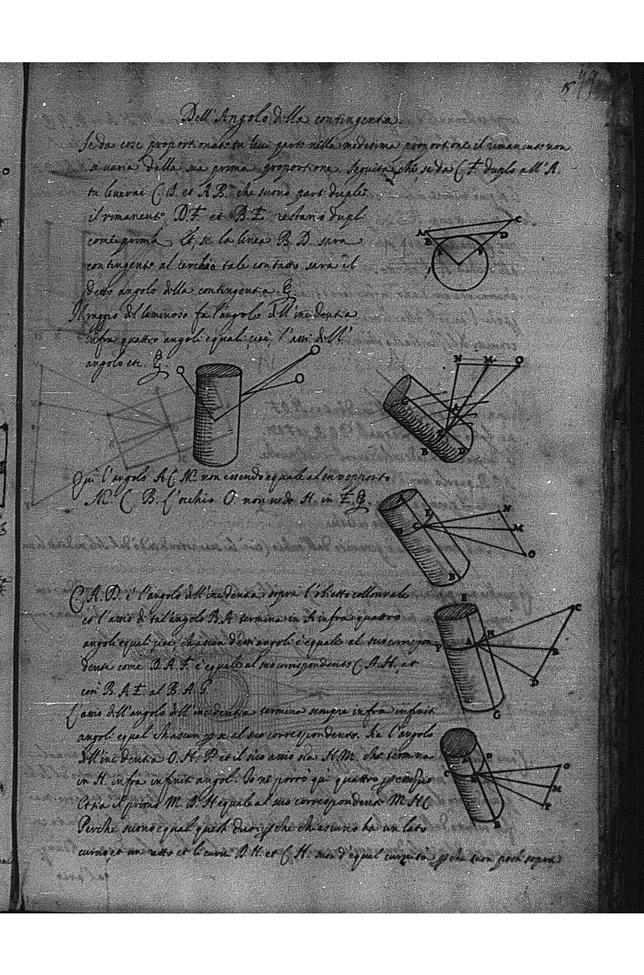 Dell'Angolo della contingentia
Se da cose proportionate tu levi parte nella medesima proportione il rimanente non
si varia dalla sua prima proportione. Seguita che se da C F. duplo all'A.
tu leverai C D. et A B. che sieno parti duple
il rimanente D F. et B E. restano dupli
come prima. Et se la linea B D. sara
contingente al cerchio tale contatto sara il
detto angolo della contingentia.
Il raggio del luminoso fa l'angolo dell'incidentia
infra quattro angoli equali cioè, l'assi dell'
angolo etc.
A B C D
N M O
A B D
Qui l'angolo A C N. non essendo equale al suo opposto
M. C B. l'occhio O. non vede N. in E.
A E C N M O B
C A D. è l'angolo dell'incidentia sopra l'obietto collonnale
et l'assi di tal'angolo B A termina in A infra quattro
angoli equali cioè, chiascun d'essi angoli è equale al suo correspon
dente come B. A F. è equale al suo corrispondente C. A. H. et
così B. A E al B. A G.
E C F A H B D G
L'assi dell'angolo dell'incidentia termina sempre infra infiniti
angoli equali chiascun al suo correspondente. Sia l'angolo
dell'incidentia O. H. P. et il suo assis sia H. M. che termina
in H infra infiniti angoli. Io ne porrò qui quattro
Et sia il primo M. B. H equale al suo correspondente M H C
Perche sieno equali questi dui che chiascuno ha un lato
curvo et un retto et li curvi B. H. et C H. son d'equal curvita
A D C H O M P B